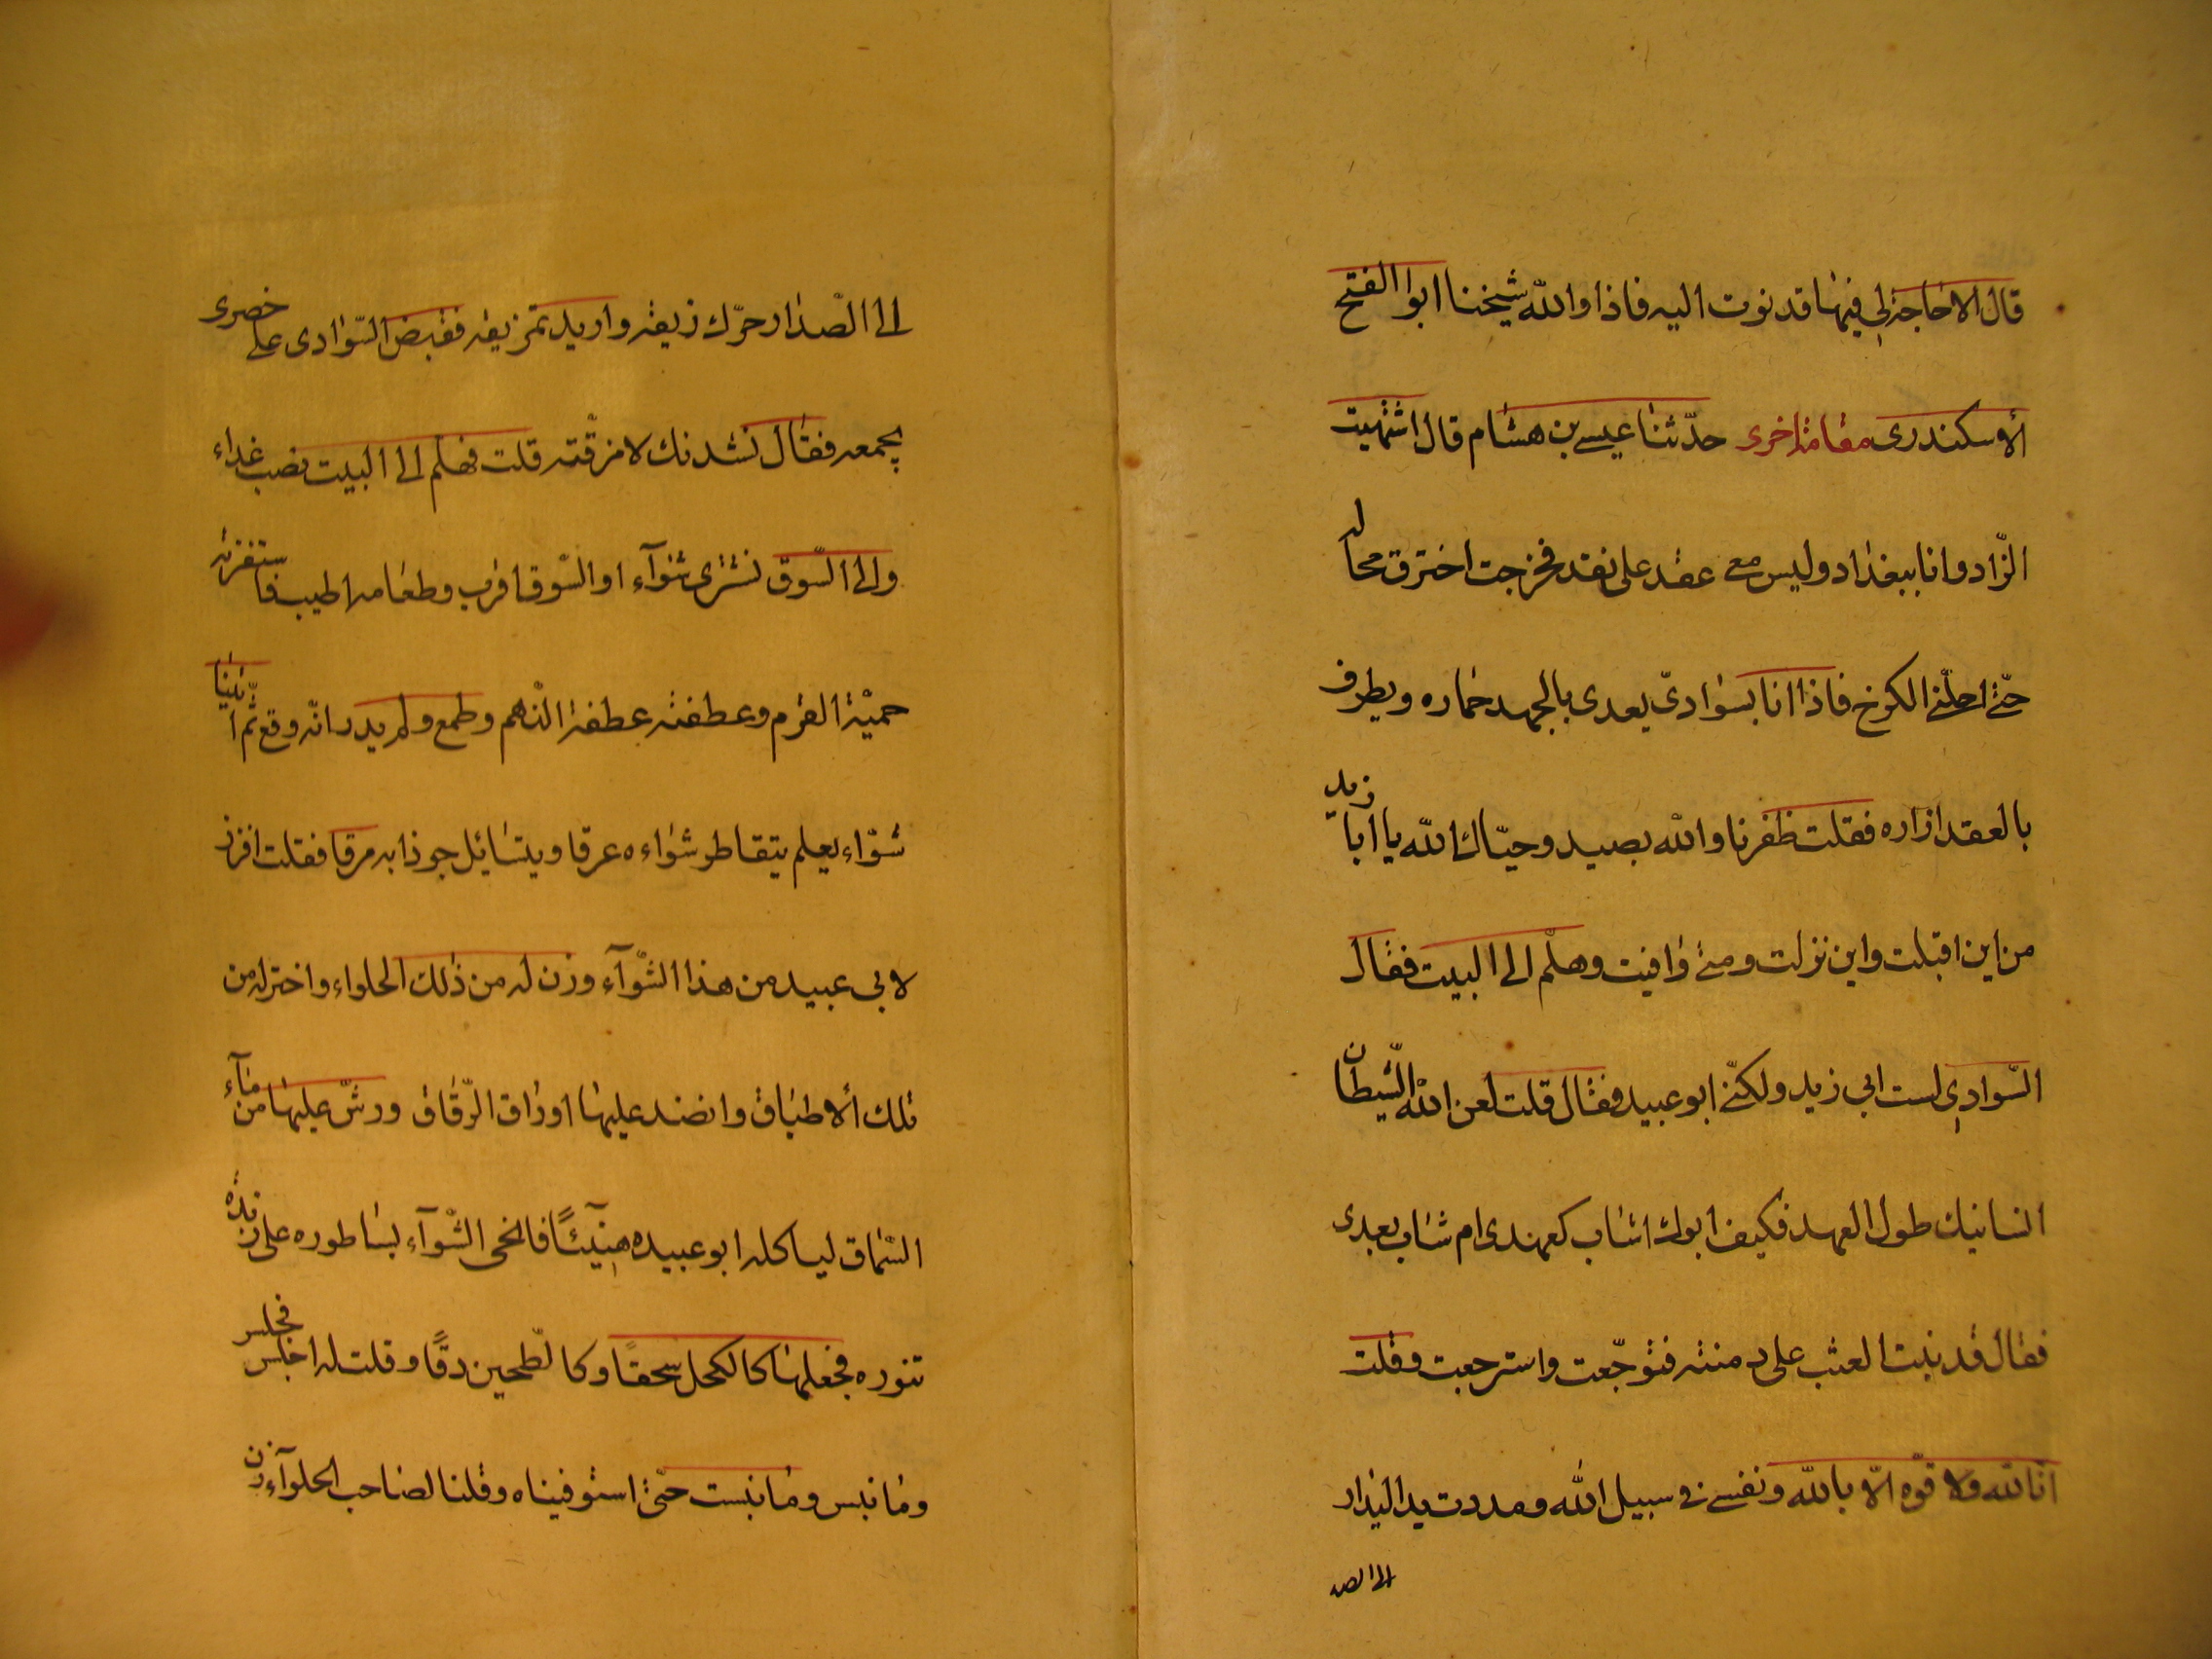 قال لا حاجة لي فيها قد نوت اليه فاذا والله شيخنا ابوا الفتح
ألاسكندرى مقامة اخرى حدّثنا عيسى بن هشام قال اشتهيت
الزّاد وانا ببغداد وليس معى عقد على نقد فخرجت اخترق محاله
حتّى احلّني الكرخ فاذا انا بسوادىّ يعدى بالجهد حماره ويطرف
بالعقد ازاره فقلت ظفرنا والله بصيد وحيّاك الله يا ابا زيد
من اين اقبلت واين نزلت ومتى وافيت وهلّم الى البيت فقال
السّوادي لست ابي زيد ولكنّي ابو عبيد فقال قلت لعن الله الشّيطان
انسانيك طول العهد فكيف ابوك اشاب كعهدى ام شاب بعدى
فقال قد نبت العشب على دمنته فتوجّعت واسترجعت وقلت
انّا لله ولا قوّه الّا بالله ونفسى فى سبيل الله ومددت يد البدار
الى الصد
الى الصّدار حرّك زيقه واريد تمزيقه فقبض السّوادى على خصرى
بجمعه فقال نشدتك لا مزقته قلت فهلّم الى البيت نصب غداء
والى السّوق نشترى شوآء او السّوق اقرب وطعامه اطيب فاستفزته
حميّة القرم وعطفته عطفة النّهم وطمع ولم يدر انّه وقع ثمّ اتينا
شوّاء يعلم يتقاطر شواءه عرقا ويتسائل جوذابه مرقا فقلت افرز
لابي عبيد من هذا الشّوآء وزن له من ذلك الحلواء واختر له من
تلك ألاطباق وانضد عليها اوراق الرّقاق ورشّ عليها من مآء
السّماق لياكله ابو عبيده هنيئًا فانحى الشّوآء بساطوره على زبدة
تنوره فجعلها كالكحل سحقًا وكالطّحين دقًا وقلت له اجلس فجلس
وما نبس وما نبست حتّى استوفيناه وقلنا لصاحب الحلوآء زن